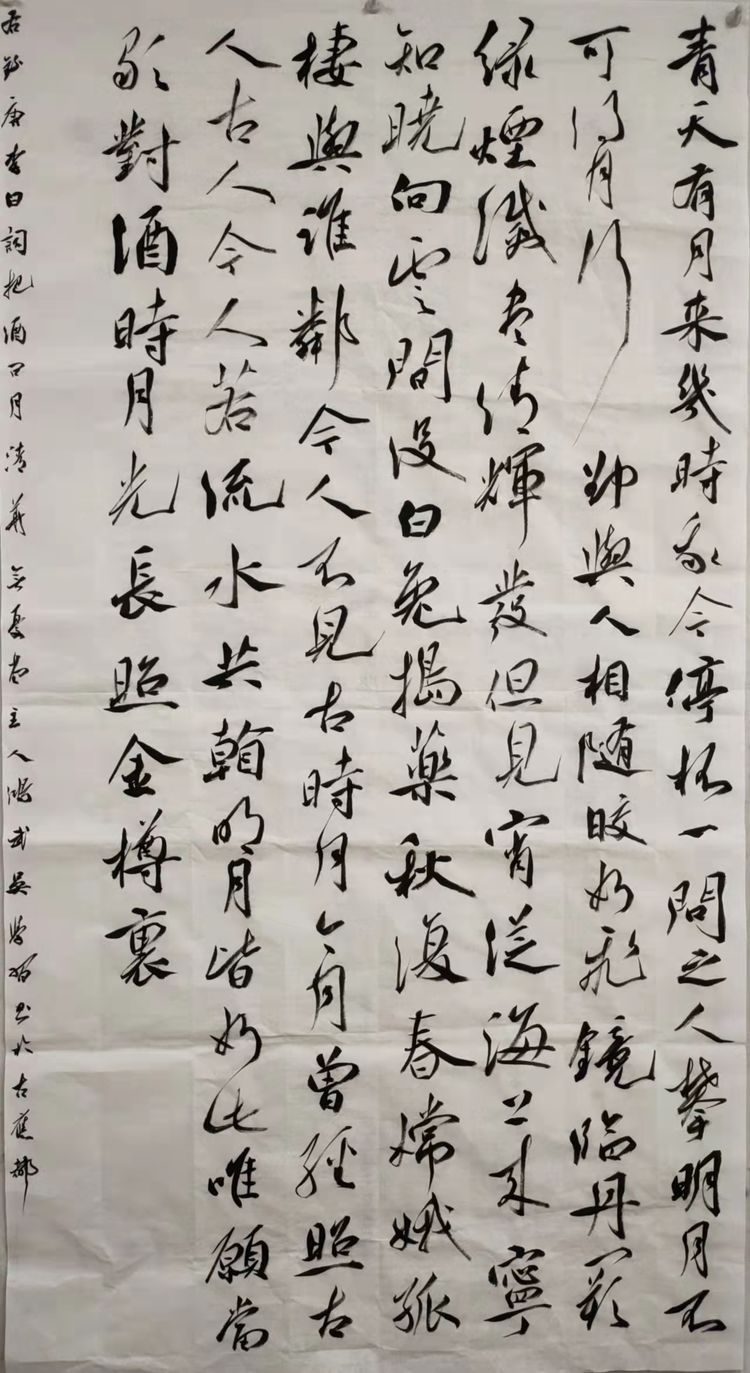 青天有月来幾時我今停杯一問之人攀明月不
可得月行卻與人相随皎如飛鏡臨丹闕
緑煙滅盡清輝發但見宵從海上来寧
知曉向雲間没白兔搗藥秋復春嫦娥孤
棲與誰鄰今人不見古時月今月曾經照古
人古人今人若流水共翰明月皆如此唯願當
歌對酒時月光長照金樽裏
右録唐李白詞把酒問月 主人鴻武吴 書於古